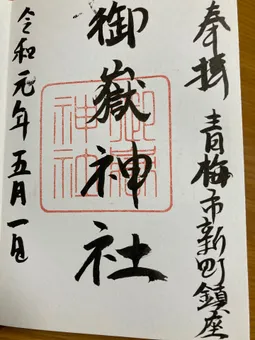 奉拝 青梅市新町鎮座
御嶽神社
令和元年五月一日